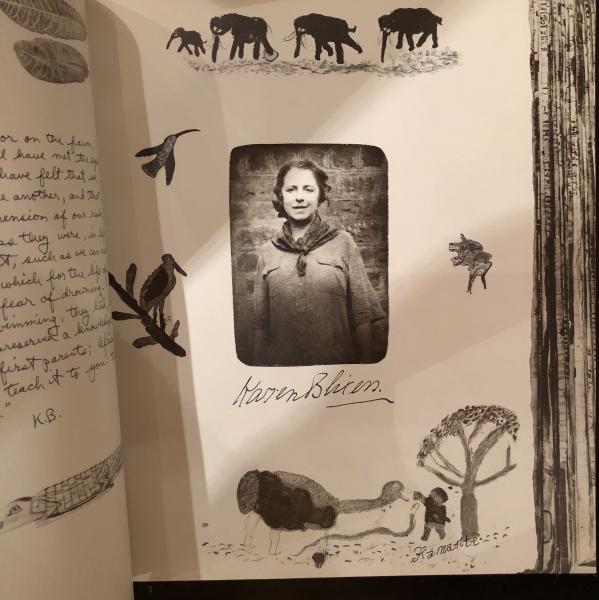 or on the farm,
have met the
have felt that
e another, and that
rension of our
as they were, in
t, such as we can
which for the
fear of drowning.
wimming, they
preserved a knowledge
first parents;
teach it to you
"
K.B.
Karen Blixen.
Kamante